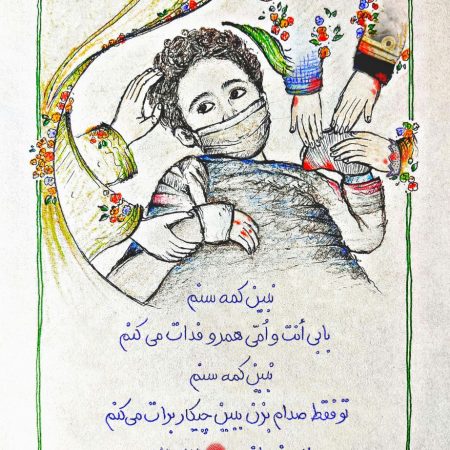 نبین کمه سنم
بابی أنت و اُمّی همرو فدات می کنم
نبین کمه سنم
تو فقط صدام بزن ببین چیکار برات می‌کنم